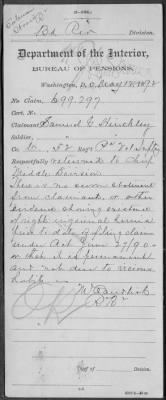 Bd Rev Division.
Department of the Interior,
BUREAU OF PENSIONS,
Washington, D.C., May 12, 1892
No. Claim, 699.297
Cert. No.
Claimant, Samuel G Hinckley
Soldier,
Co. 52 Regt Pa Vol Inf
Respectfully returned to Chief
Middle Division
There is no sworn statement
from claimant, or other
evidence showing existence
of right inguinal hernia
prior to date of filing claim
under Act June 27/90
or that it is permanent
and not due to vicious
habits.
Division.